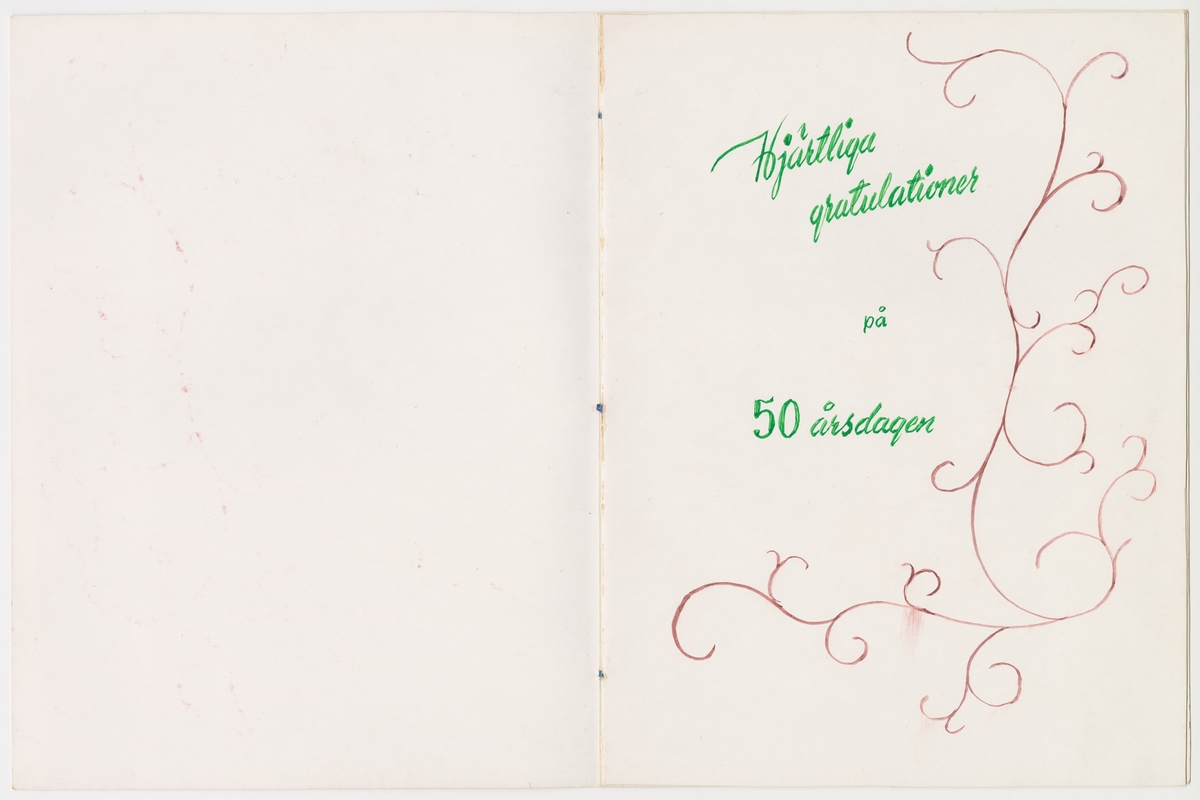 Hjärtliga
gratulationer
på
50 årsdagen